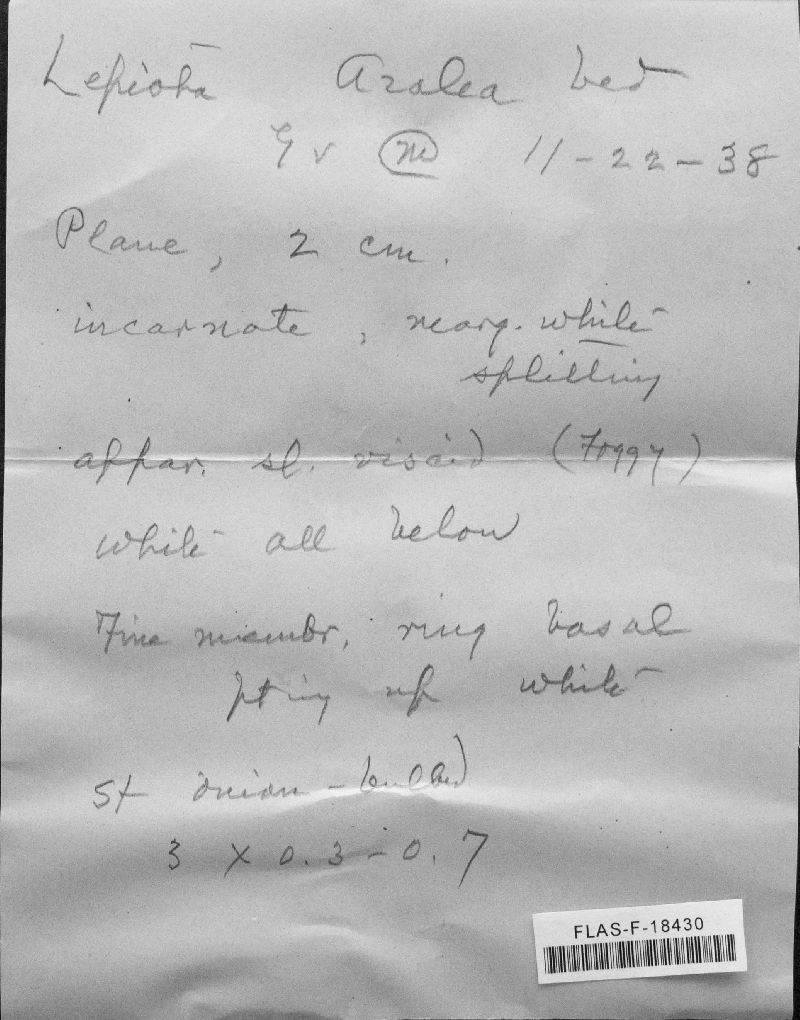 Lepiota Azalea bed
Gv m 11-22-38
Plane, 2 cm.
incarnate, marg. white
splitting
appar. sl. viscid (Foggy)
white all below
Fine membr. ring basal
pting up white
St onion-bulbed
3 X 0.3-0.7
FLAS-F-18430